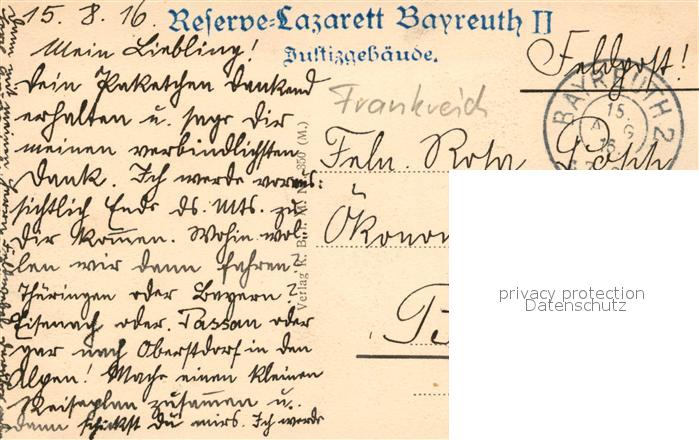 15. 8. 16.
Reserve-Lazarett Bayreuth II
Justizgebäude.
Feldpost!
Mein Liebling!
Dein Paketchen dankend
erhalten u. sage Dir
meinen verbindlichsten
Dank. Ich werde voraus:
sichtlich Ende ds. Mts. zu
Dir kommen. Wohin wol
len wir dann fahren?
Thüringen oder Bayern?
Eisenach oder Passau oder
gar nach Oberstdorf in den
Alpen! Mache einen kleinen
Reiseplan zusammen u.
dann schickst Du mirs. Ich werde
Frankreich
BAYREUTH 2
15.
A G
16.
Feln. Rosa Popp
Ökonom
Verlag K. B. i. M. 350 (M.)
privacy protection
Datenschutz